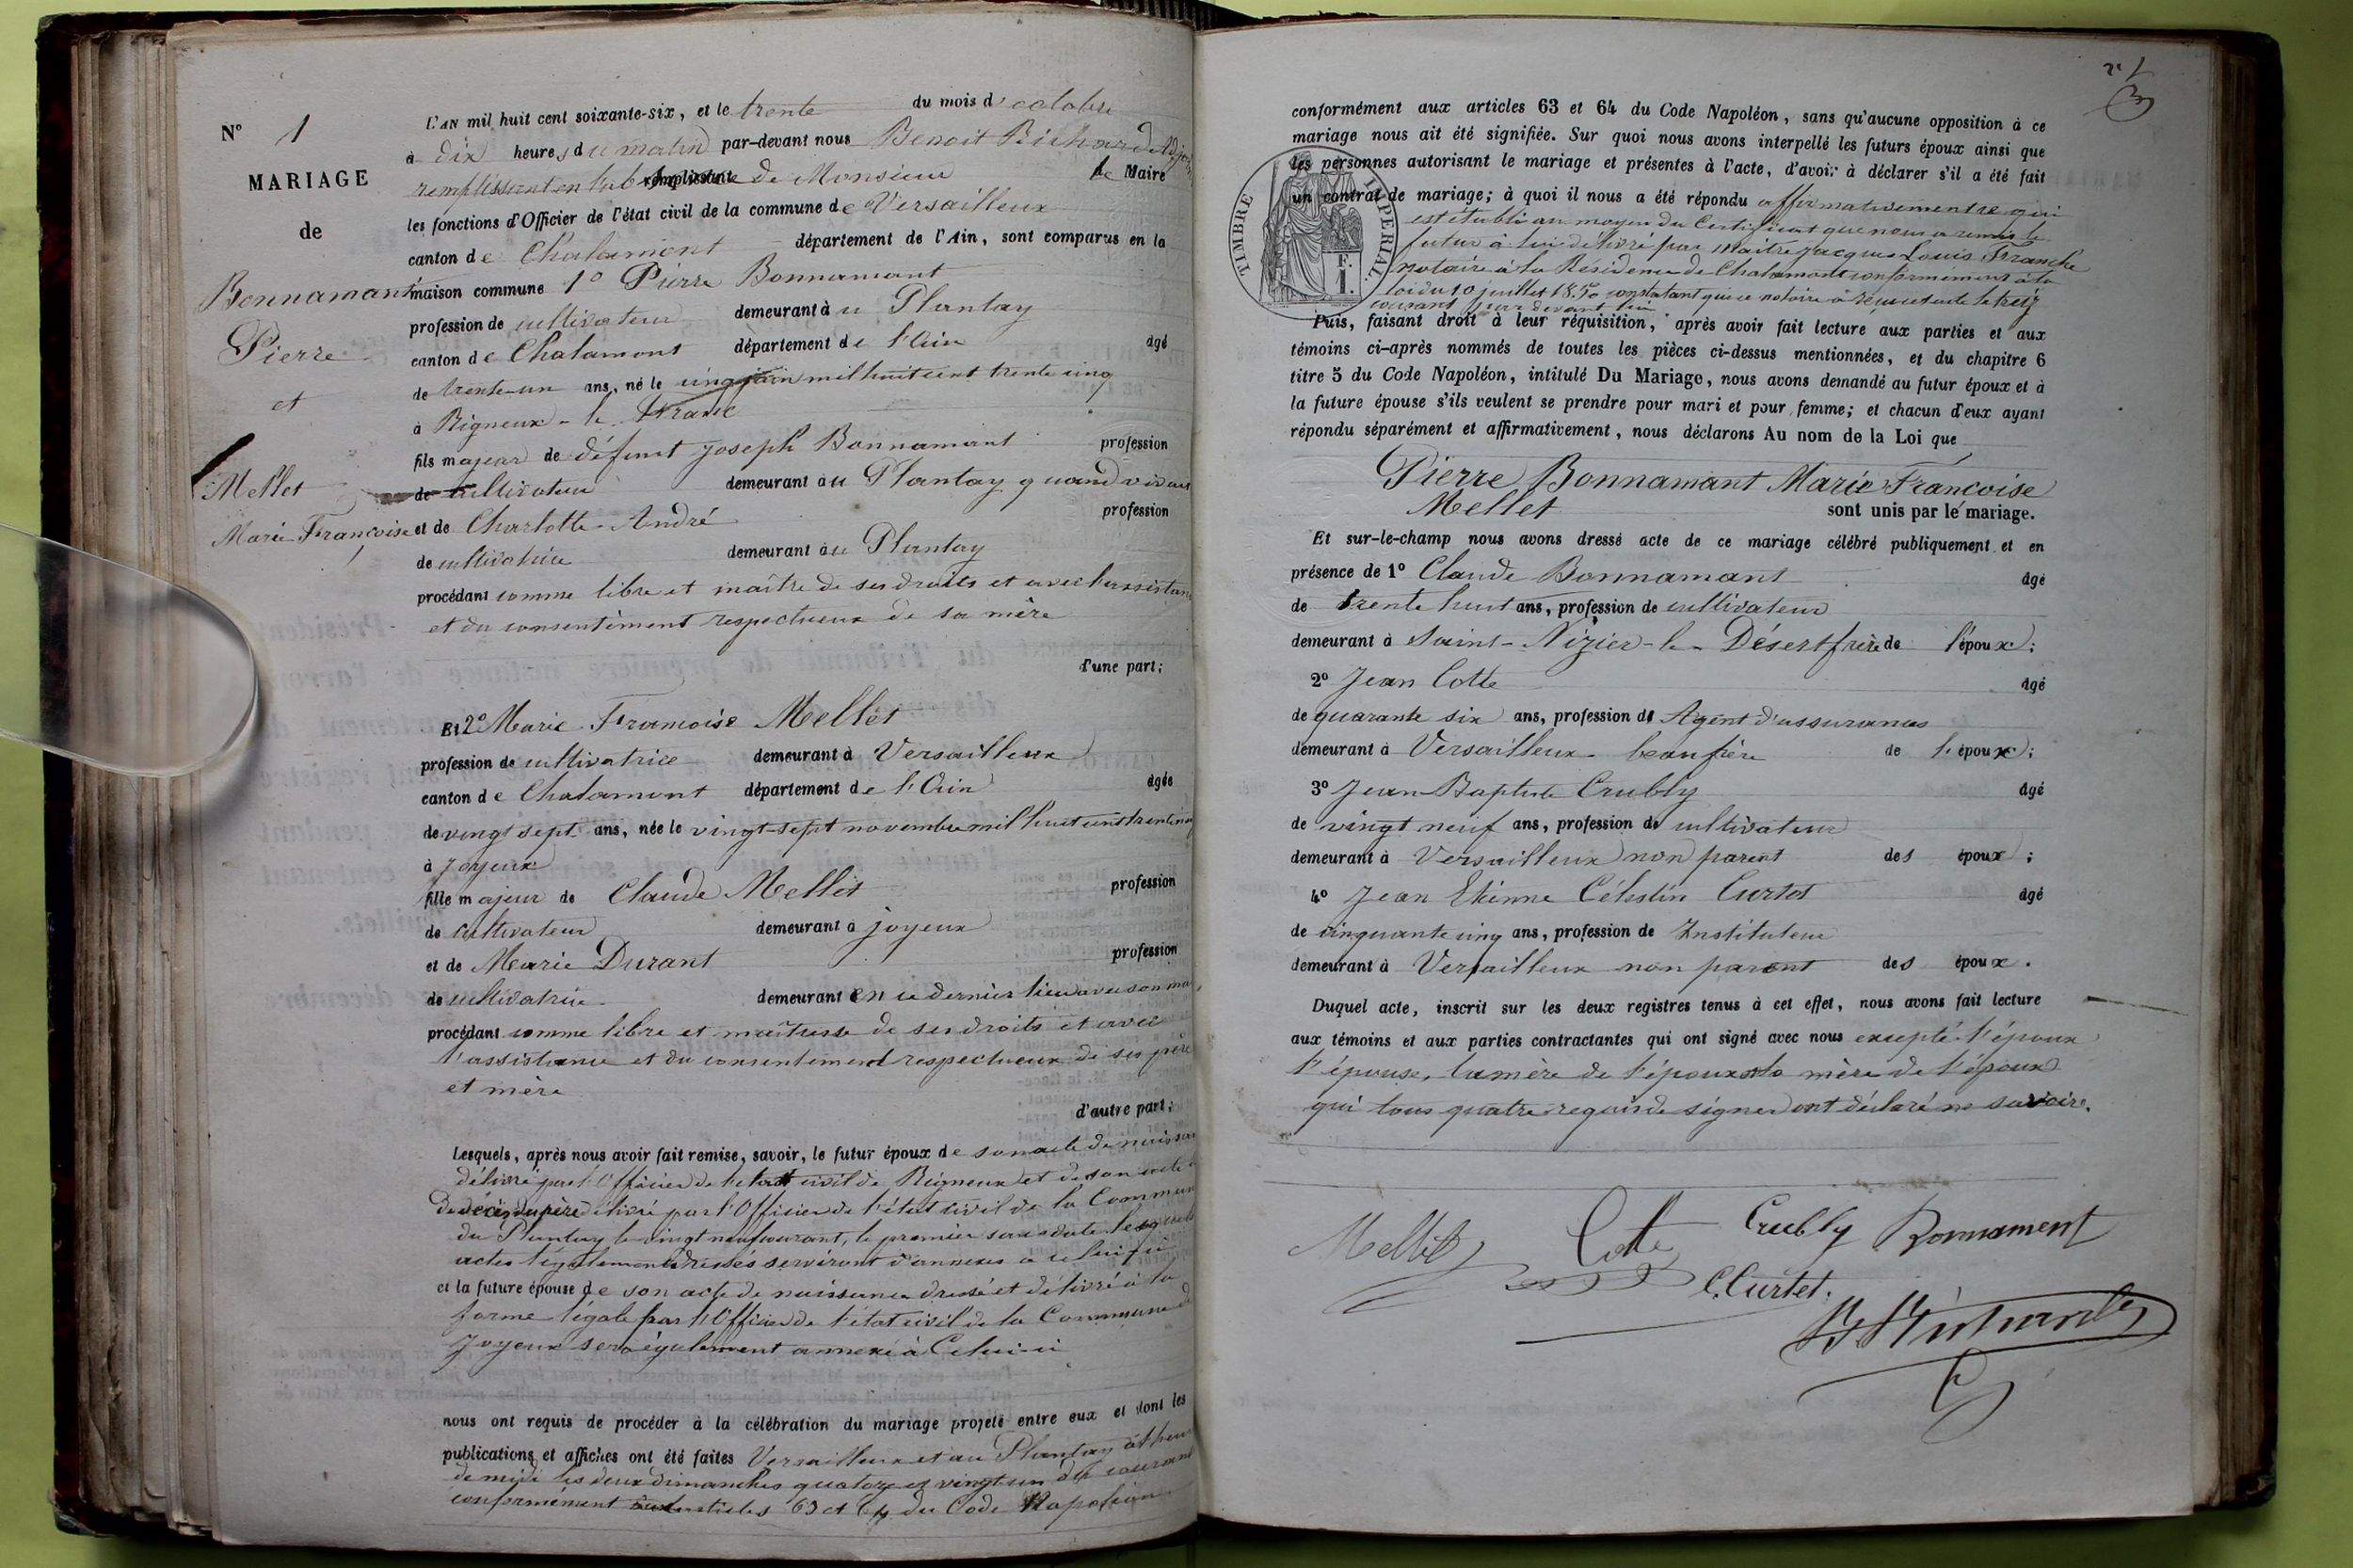 N° 1
MARIAGE
de
Bonnamant
Pierre
et
Mellet
Marie Françoise
L'AN mil huit cent soixante-six, et le trente du mois d'octobre
à dix heures du matin par-devant nous Benoit Richard Adj
remplissant en l'absence de Monsieur le Maire
les fonctions d'Officier de l'état civil de la commune de Versailleux
canton de Chalamont département de l'Ain, sont comparus en la
maison commune 1° Pierre Bonnamant
profession de cultivateur demeurant au Plantay
canton de Chalamont département de l'Ain âgé
de trente-un ans, né le cinq juin mil huit cent trente cinq
à Rigneux-le-Franc
fils majeur de défunt Joseph Bonnamant profession
de cultivateur demeurant au Plantay quand vivait
et de Charlotte André profession
de cultivatrice demeurant au Plantay
procédant comme libre et maître de ses droits et avec l'assistance
et du consentement respectueux de sa mère
d'une part;
Et 2° Marie Françoise Mellet
profession de cultivatrice demeurant à Versailleux
canton de Chalamont département de l'Ain âgée
de vingt sept ans, née le vingt-sept novembre mil huit cent trente
à Joyeux
fille majeur de Claude Mellet profession
de cultivateur demeurant à Joyeux
et de Marie Durant profession
de cultivatrice demeurant en ce dernier lieu avec son ma
procédant comme libre et maîtresse de ses droits et avec
l'assistance et du consentement respectueux de ses père
et mère
d'autre part;
Lesquels, après nous avoir fait remise, savoir, le futur époux de son acte de naissan
délivré par l'Officier de l'état civil de Rigneux et de son acte
de décès du père délivré par l'Officier de l'état civil de la Commune
du Plantay le vingt neuf courant, le premier sans date lesquels
actes légalement dressés serviront d'annexes à celui-ci
et la future épouse de son acte de naissance dressé et délivré à la
forme légale par l'Officier de l'état civil de la Commune de
Joyeux sera également annexé à Celui-ci
nous ont requis de procéder à la célébration du mariage projeté entre eux et dont les
publications et affiches ont été faites Versailleux et au Plantay à l'heure
de midi les deux dimanches quatorze et vingt un du courant
conformément aux articles 63 et 64 du Code Napoléon
conformément aux articles 63 et 64 du Code Napoléon, sans qu'aucune opposition à ce
mariage nous ait été signifiée. Sur quoi nous avons interpellé les futurs époux ainsi que
les personnes autorisant le mariage et présentes à l'acte, d'avoir à déclarer s'il a été fait
un contrat de mariage; à quoi il nous a été répondu affirmativement ce qui
est établi au moyen du Certificat que nous a remis le
futur à lui délivré par maître Jacques Louis Franche
notaire à la Résidence de Chalamont conformément à la
loi du 10 juillet 1850 constatant que ce notaire a reçu cet acte le treize
courant par devant lui
TIMBRE IMPERIAL.
Puis, faisant droit à leur réquisition, après avoir fait lecture aux parties et aux
témoins ci-après nommés de toutes les pièces ci-dessus mentionnées, et du chapitre 6
titre 5 du Code Napoléon, intitulé Du Mariage, nous avons demandé au futur époux et à
la future épouse s'ils veulent se prendre pour mari et pour femme; et chacun d'eux ayant
répondu séparément et affirmativement, nous déclarons Au nom de la Loi que
Pierre Bonnamant Marie Françoise
Mellet sont unis par le mariage.
Et sur-le-champ nous avons dressé acte de ce mariage célébré publiquement et en
présence de 1° Claude Bonnamant âgé
de trente huit ans, profession de cultivateur
demeurant à Saint-Nizier-le-Désert frère de l'époux;
2° Jean Cotte âgé
de quarante six ans, profession de Agent d'assurances
demeurant à Versailleux beaufrère de l'époux;
3° Jean Baptiste Crubly âgé
de vingt neuf ans, profession de cultivateur
demeurant à Versailleux non parent des époux;
4° Jean Etienne Célestin Curtet âgé
de cinquante cinq ans, profession de Instituteur
demeurant à Versailleux non parent des époux.
Duquel acte, inscrit sur les deux registres tenus à cet effet, nous avons fait lecture
aux témoins et aux parties contractantes qui ont signé avec nous excepté l'époux
l'épouse, la mère de l'époux la mère de l'époux
qui tous quatre requis de signer ont déclaré ne savoir.
Mellet Cotte Crubly Bonnament
C. Curtet.
B Richard